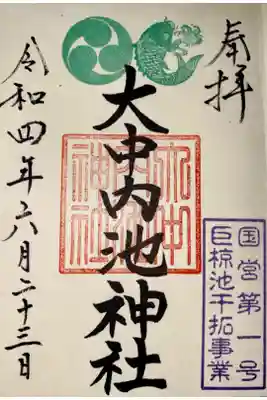 奉拝
国営第一号
巨椋池干拓事業
大中内池神社
令和四年六月二十三日